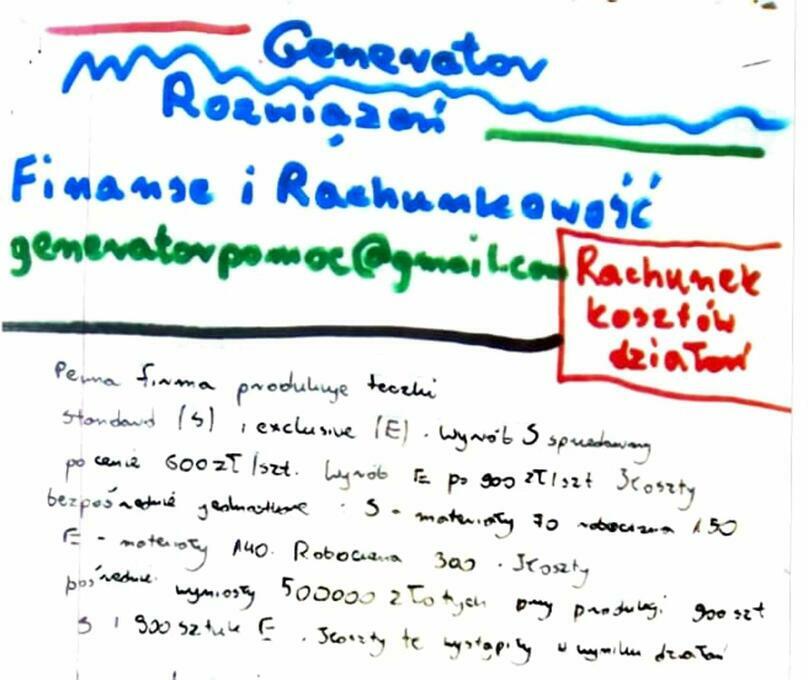 Generator
Rozwiązań
Finanse i Rachunkowość
generatorpomoc@gmail.com
Rachunek
kosztów
działań
Pewna firma produkuje teczki
standard (S) i exclusive (E). Wyrób S sprzedawany
po cenie 600 zł/szt. Wyrób E po 900 zł/szt Koszty
bezpośrednie jednostkowe: S - materiały 70 robocizna 150
E - materiały 140. Robocizna 300. Koszty
pośrednie wyniosły 500000 złotych przy produkcji 900 szt
S i 900 sztuk E. Koszty te wystąpiły w wyniku działań